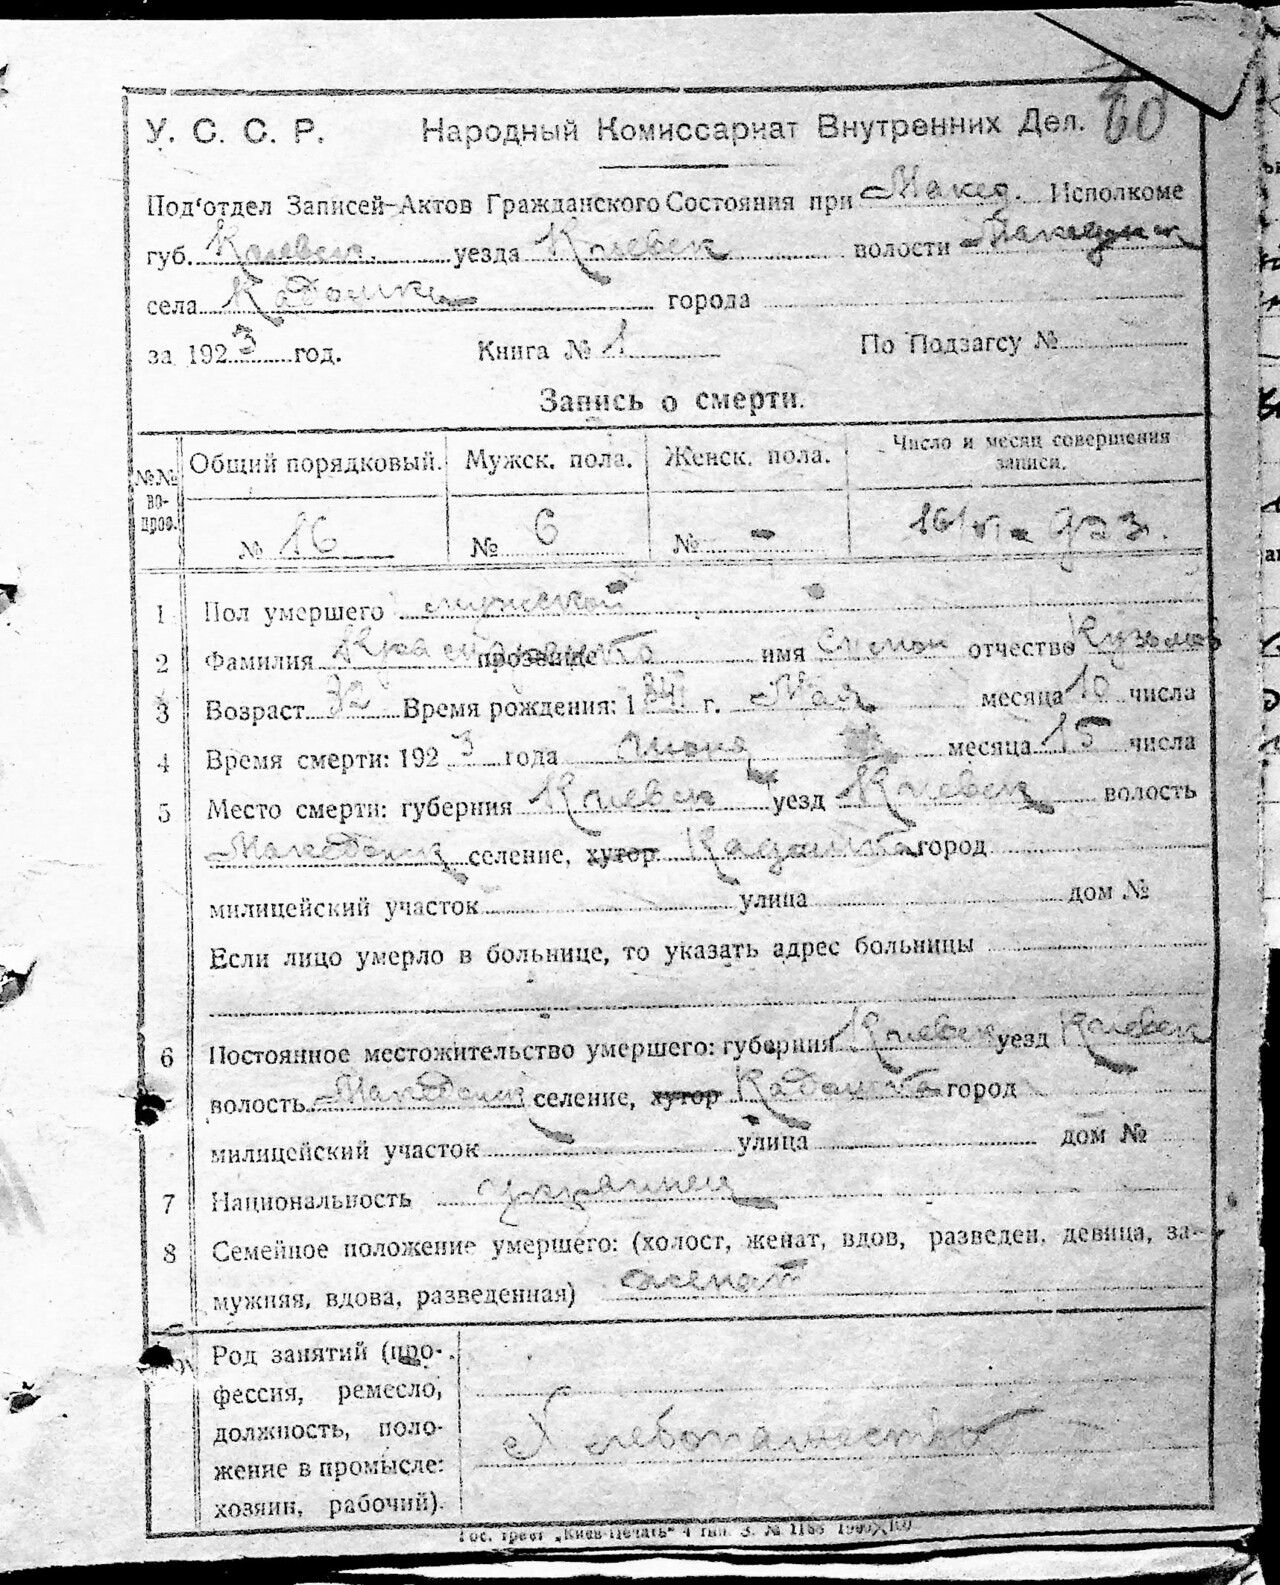 60
У. С. С. Р. Народный Комиссариат Внутренних Дел.
Под'отдел Записей-Актов Гражданского Состояния при Макед. Исполкоме
губ. Киевск. уезда Киевск волости
села города
за 1923 год. Книга № 1 По Подзагсу №
Запись о смерти.
№№ вопроз. Общий порядковый. Мужск. пола. Женск. пола. Число и месяц совершения записи.
№ 16 № 6 № - 16/VI- 923.
1 Пол умершего мужской
2 Фамилия прозвище имя отчество Кузьмов
3 Возраст 32 Время рождения: 1 г. Мая месяца 10 числа
4 Время смерти: 1923 года Июня месяца 15 числа
5 Место смерти: губерния Киевск уезд Киевск волость
Македонск селение, хутор город
милицейский участок улица дом №
Если лицо умерло в больнице, то указать адрес больницы
6 Постоянное местожительство умершего: губерния Киевск уезд Киевск
волость Македонск селение, хутор город
милицейский участок улица дом №
7 Национальность украинец
8 Семейное положение умершего: (холост, женат, вдов, разведен, девица, за-
мужняя, вдова, разведенная) женат
Род занятий (про-
фессия, ремесло,
должность, поло- Хлебопашество
жение в промысле:
хозяин, рабочий).
Гос. трест „Киев-Печать“ 4 тип. З. № 1168